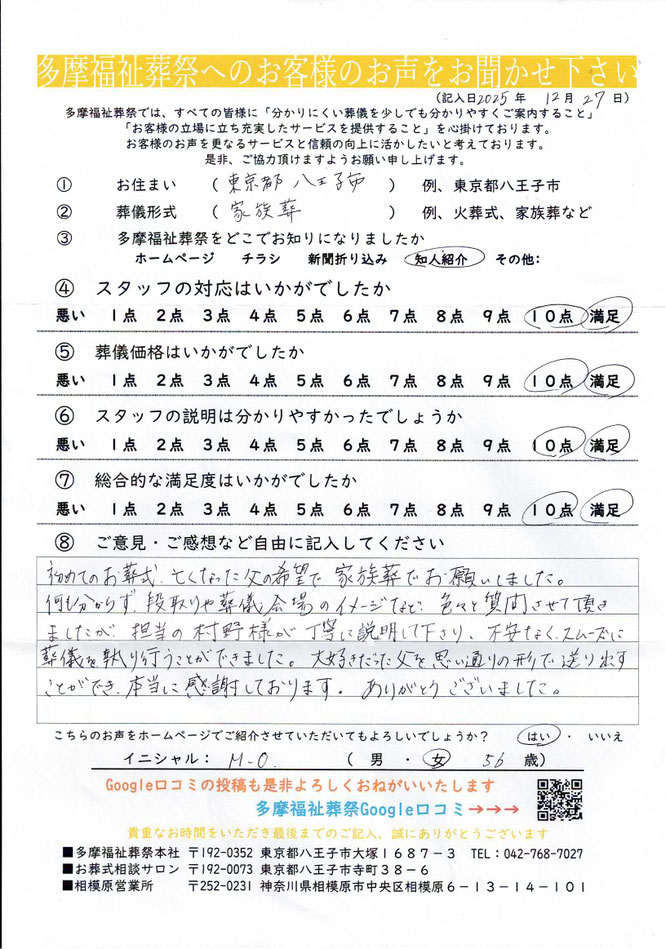 多摩福祉葬祭へのお客様のお声をお聞かせ下さい
(記入日2025年 12月 27日)
多摩福祉葬祭では、すべての皆様に「分かりにくい葬儀を少しでも分かりやすくご案内すること」
「お客様の立場に立ち充実したサービスを提供すること」を心掛けております。
お客様のお声を更なるサービスと信頼の向上に活かしたいと考えております。
是非、ご協力頂けますようお願い申し上げます。
① お住まい (東京都 八王子市) 例、東京都八王子市
② 葬儀形式 (家族葬) 例、火葬式、家族葬など
③ 多摩福祉葬祭をどこでお知りになりましたか
ホームページ チラシ 新聞折り込み 知人紹介 その他:
④ スタッフの対応はいかがでしたか
悪い 1点 2点 3点 4点 5点 6点 7点 8点 9点 10点 満足
⑤ 葬儀価格はいかがでしたか
悪い 1点 2点 3点 4点 5点 6点 7点 8点 9点 10点 満足
⑥ スタッフの説明は分かりやすかったでしょうか
悪い 1点 2点 3点 4点 5点 6点 7点 8点 9点 10点 満足
⑦ 総合的な満足度はいかがでしたか
悪い 1点 2点 3点 4点 5点 6点 7点 8点 9点 10点 満足
⑧ ご意見・ご感想など自由に記入してください
初めてのお葬式、亡くなった父の希望で家族葬でお願いしました。
何も分からず、段取りや葬儀会場のイメージなど、色々と質問させて頂き
ましたが、担当の村野様が丁寧に説明して下さり、不安なく、スムーズに
葬儀を執り行うことができました。大好きだった父を思い通りの形で送り出す
ことができ、本当に感謝しております。ありがとうございました。
こちらのお声をホームページでご紹介させていただいてもよろしいでしょうか? はい・いいえ
イニシャル: M-O. (男・女 56歳)
Google口コミの投稿も是非よろしくおねがいいたします
多摩福祉葬祭Google口コミ→→→
貴重なお時間をいただき最後までのご記入、誠にありがとうございます
■多摩福祉葬祭本社 〒192-0352 東京都八王子市大塚1687-3 TEL:042-768-7027
■お葬式相談サロン 〒192-0073 東京都八王子市寺町38-6
■相模原営業所 〒252-0231 神奈川県相模原市中央区相模原6-13-14-101